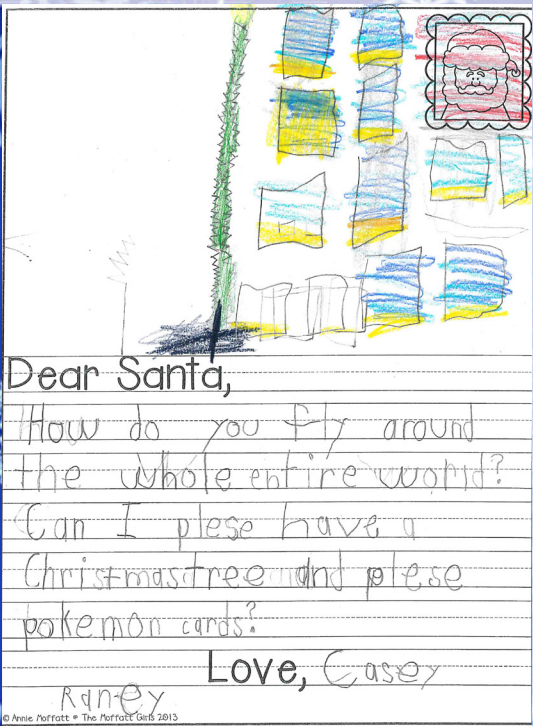 Dear Santa,
How do you fly around
the whole entire world?
Can I plese have a
Christmas tree and plese
pokemon cards?
Love, Casey
Raney
© Annie Moffatt @ The Moffatt Girls 2013